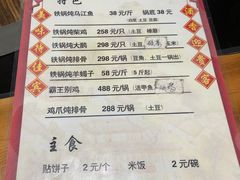 特色
铁锅炖乌江鱼 38元/斤 锅底 38元
铁锅炖柴鸡 258元/只 (土豆 榛蘑
铁锅炖大鹅 298元/只 (土豆 玉米)
铁锅炖排骨 298元/锅 (豆角、土豆 锅出)
铁锅炖羊蝎子 58元/斤 5斤起
霸王别鸡 488元/锅 (活甲鱼
鸡爪炖排骨 288元/锅 (土豆)
主食
贴饼子 2元/个 米饭 2元/碗
美味传佳宾
酒香迎贵客